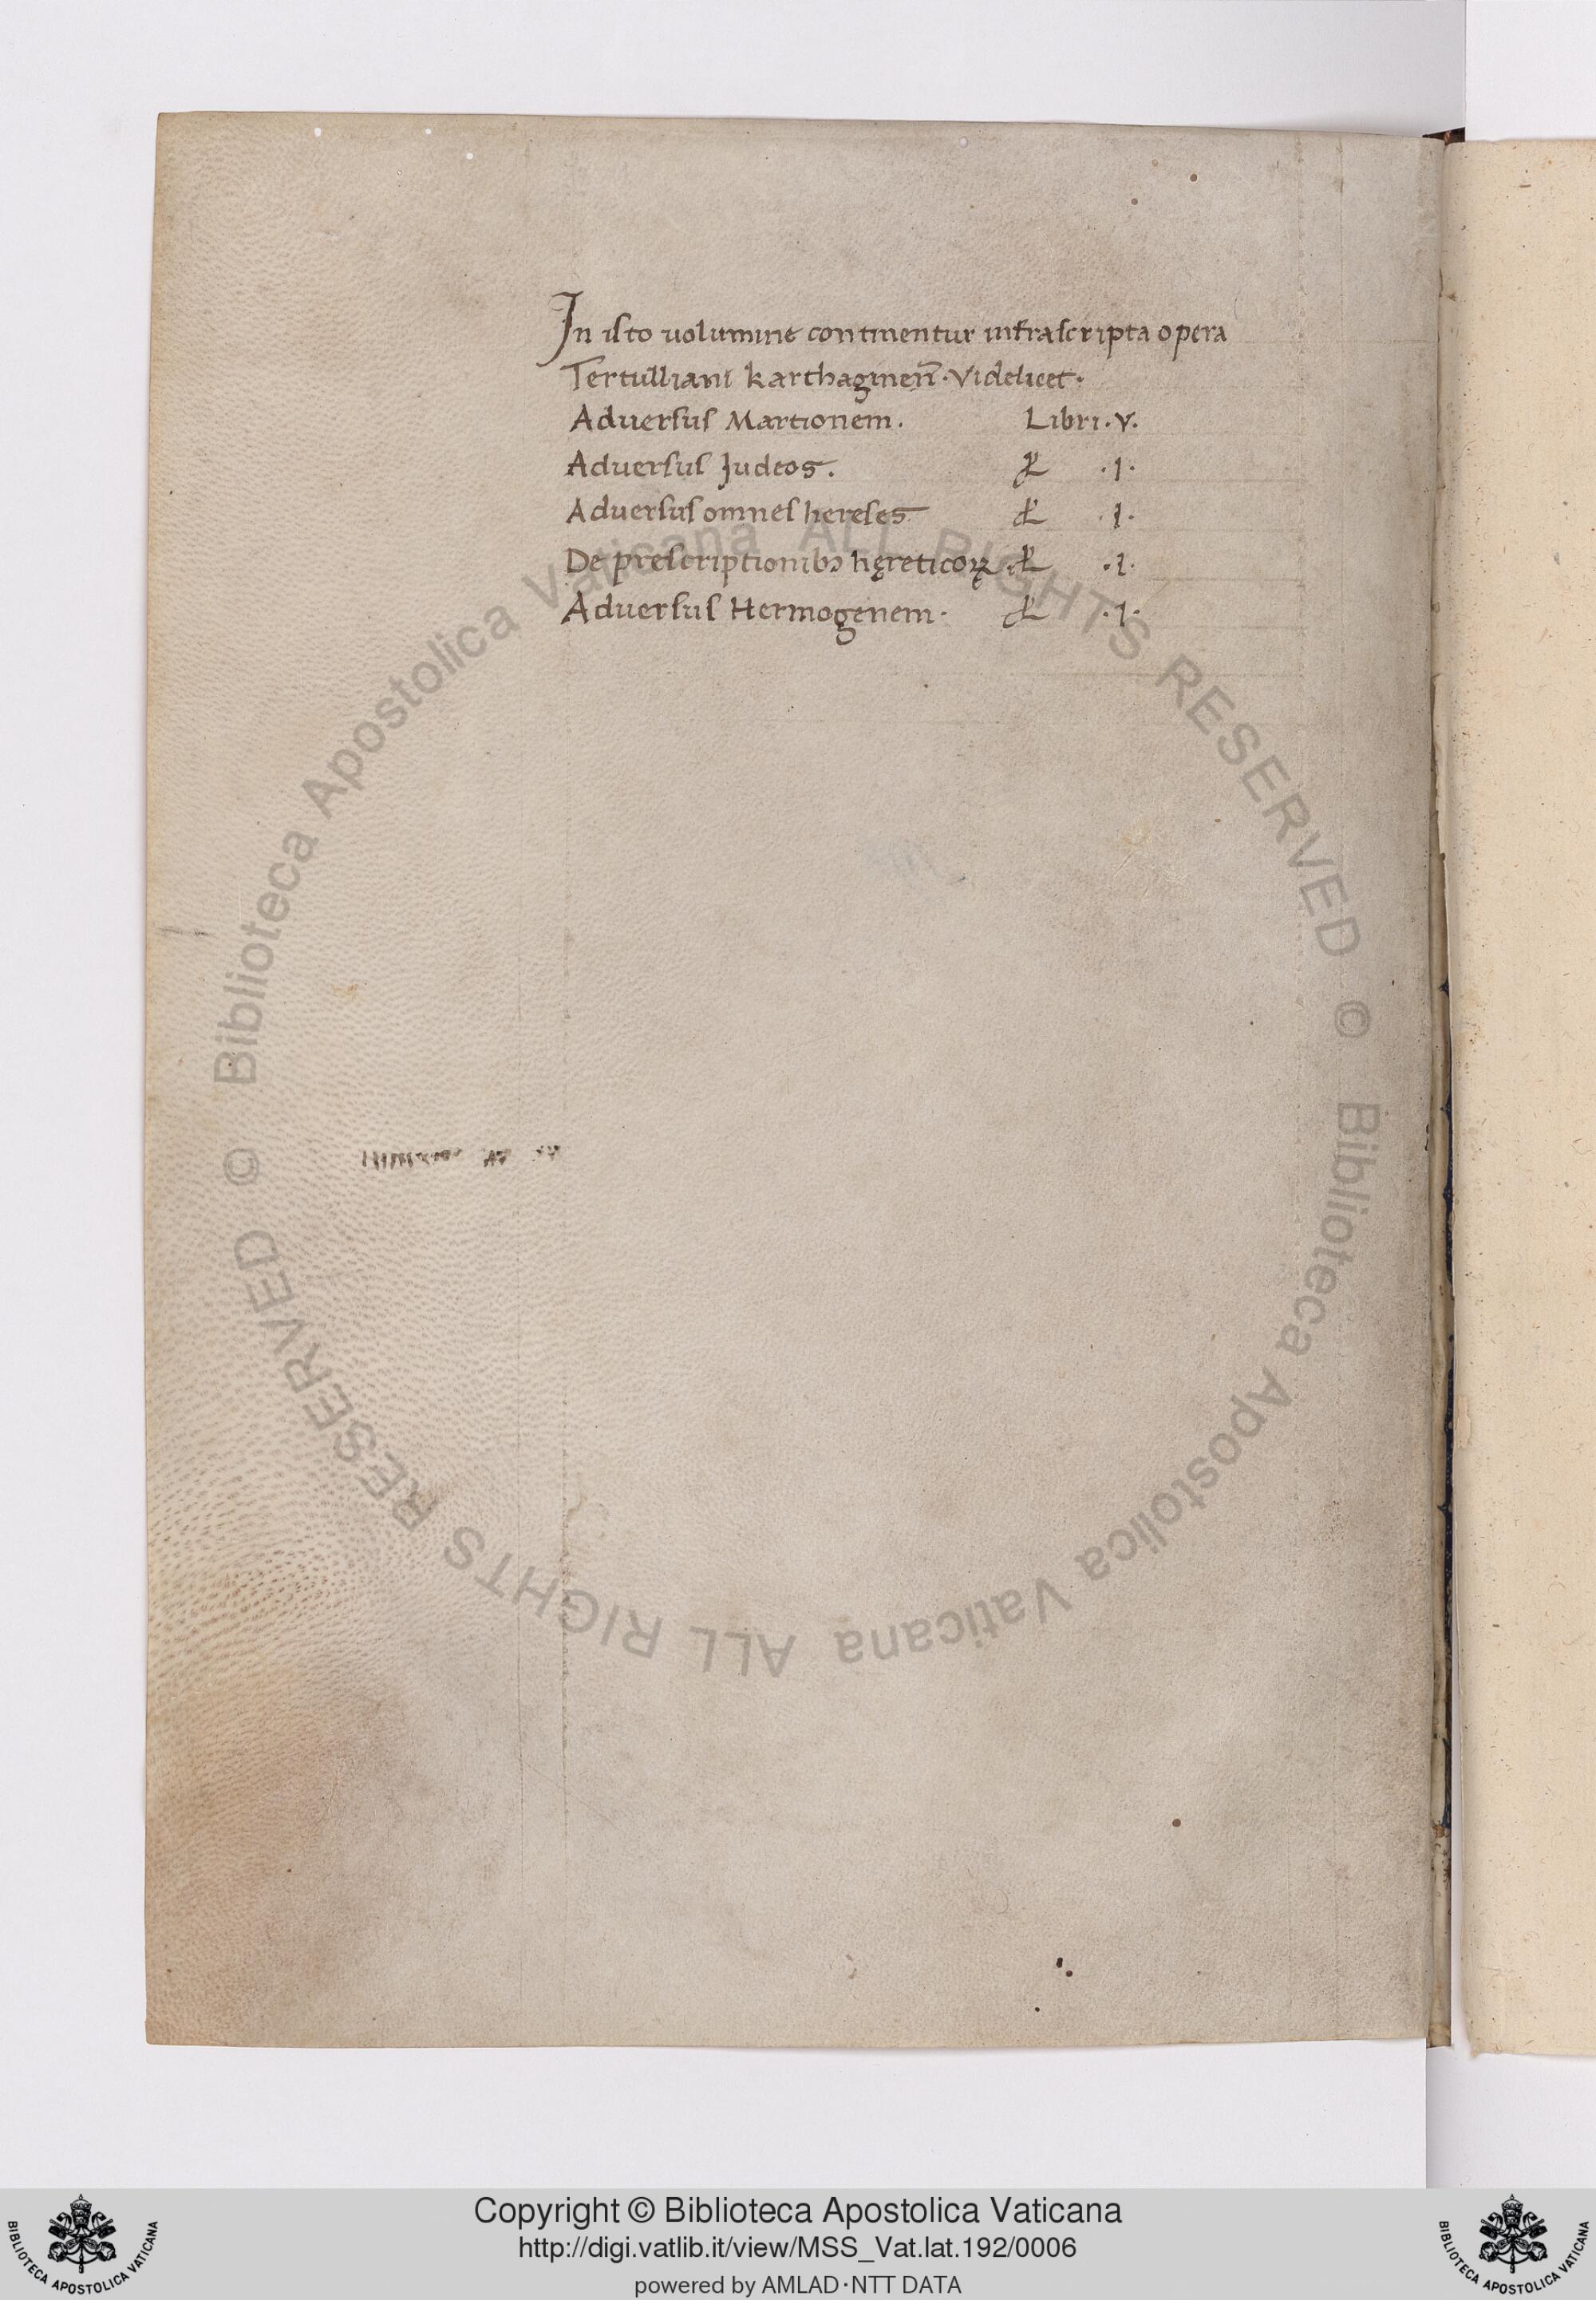 In isto uolumine continentur infrascripta opera
Tertulliani karthaginen̄. Videlicet.
Aduersus Martionem. Libri .v.
Aduersus Judeos. .1.
Aduersus omnes hereses .1.
De prescriptionibꝫ hęreticoꝝ. .1.
Aduersus Hermogenem. .1.
© Biblioteca Apostolica Vaticana ALL RIGHTS RESERVED © Biblioteca Apostolica Vaticana ALL RIGHTS RESERVED
Copyright © Biblioteca Apostolica Vaticana
http://digi.vatlib.it/view/MSS_Vat.lat.192/0006
powered by AMLAD·NTT DATA
BIBLIOTECA APOSTOLICA VATICANA
BIBLIOTECA APOSTOLICA VATICANA